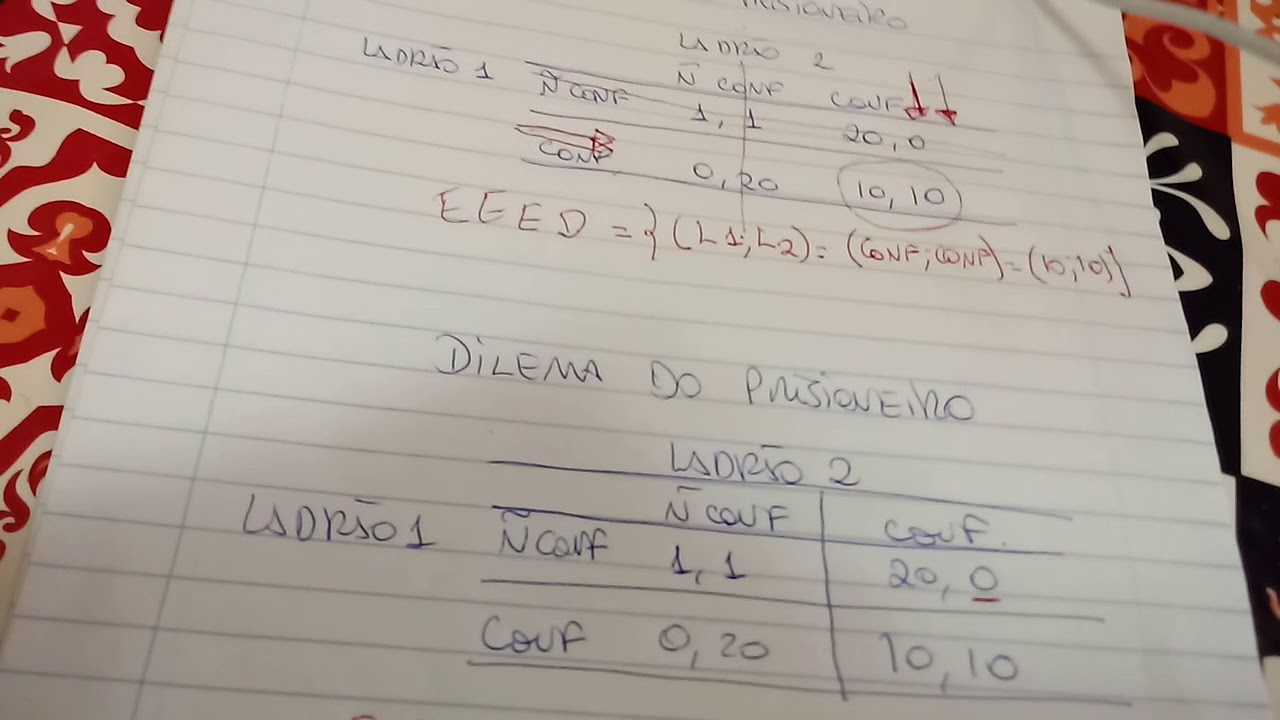 PRISIONEIRO
LADRÃO 2
LADRÃO 1 Ñ CONF CONF
Ñ CONF 1, 1 20, 0
CONF 0, 20 10, 10
EEED = {(L1; L2) = (CONF; CONF) = (10, 10)}
DILEMA DO PRISIONEIRO
LADRÃO 2
Ñ CONF CONF.
LADRÃO 1 Ñ CONF 1, 1 20, 0
CONF 0, 20 10, 10